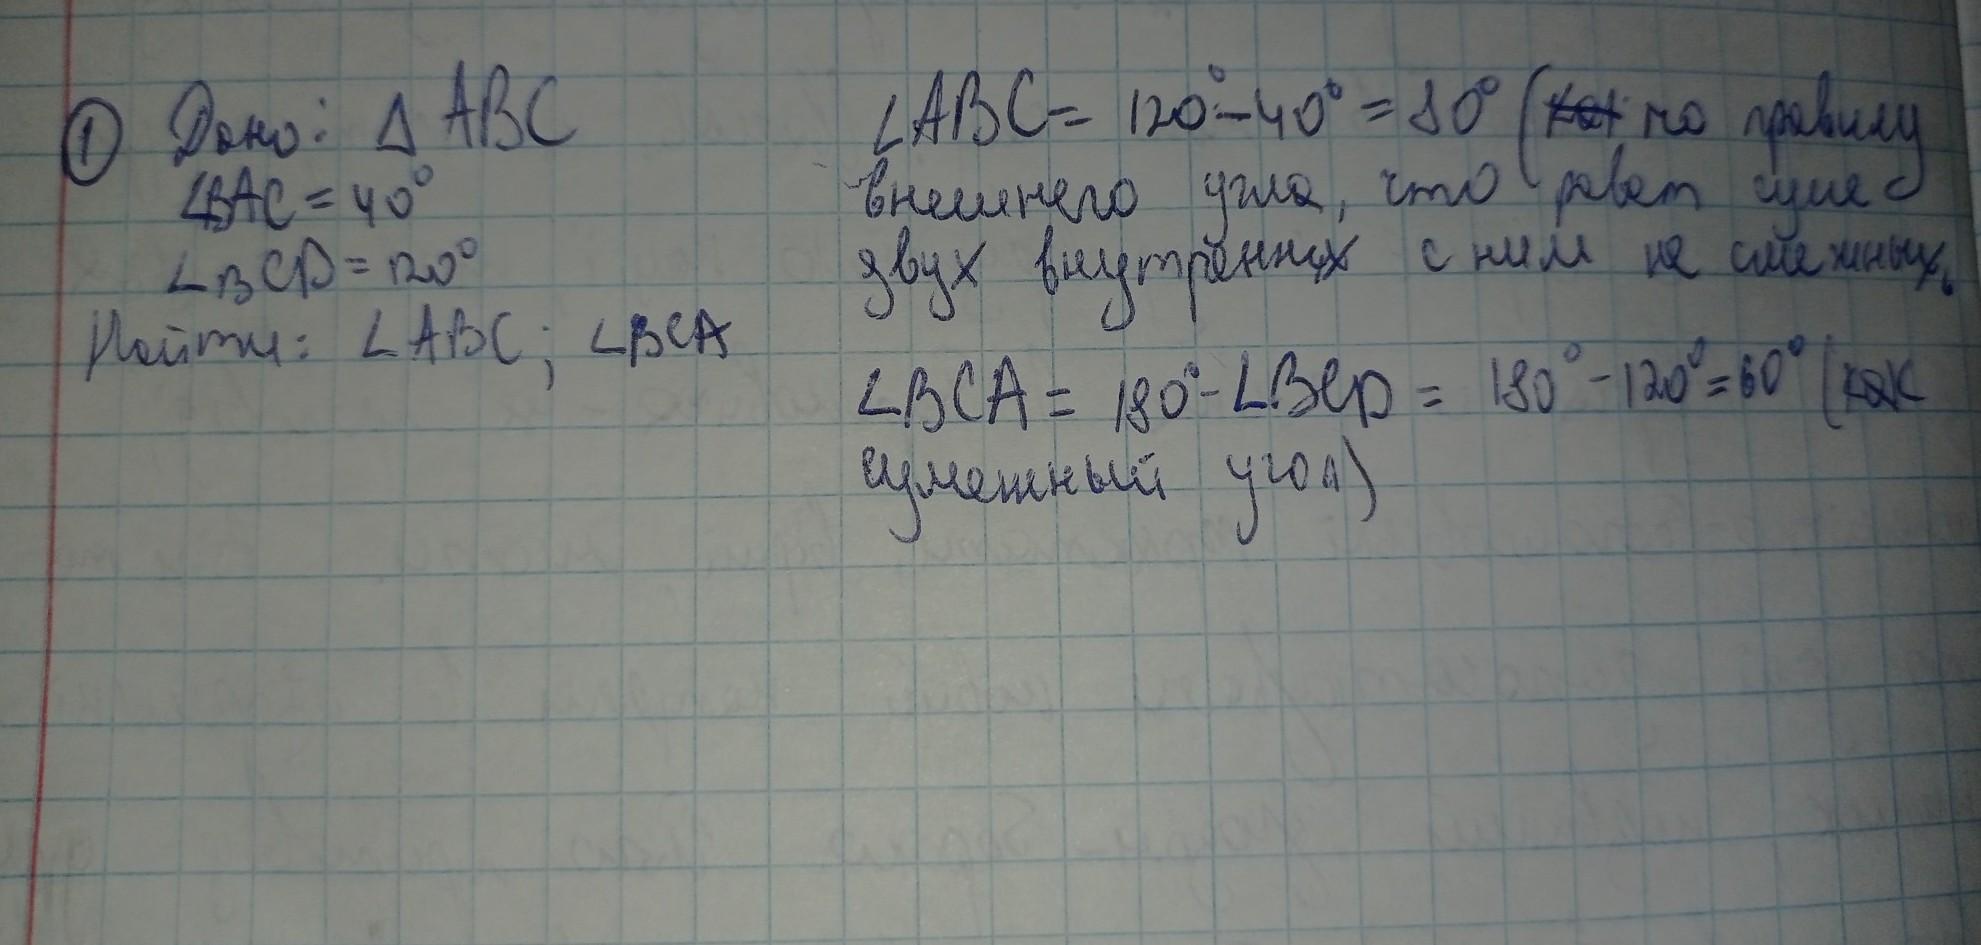 ① Дано: Δ ABC
∠BAC = 40°
∠BCD = 120°
Найти: ∠ABC; ∠BCA
∠ABC = 120° - 40° = 80° (по правилу
внешнего угла, что равен сумме
двух внутренних с ним не смежных.
∠BCA = 180° - ∠BCD = 180° - 120° = 60° (как
сумежный угол)